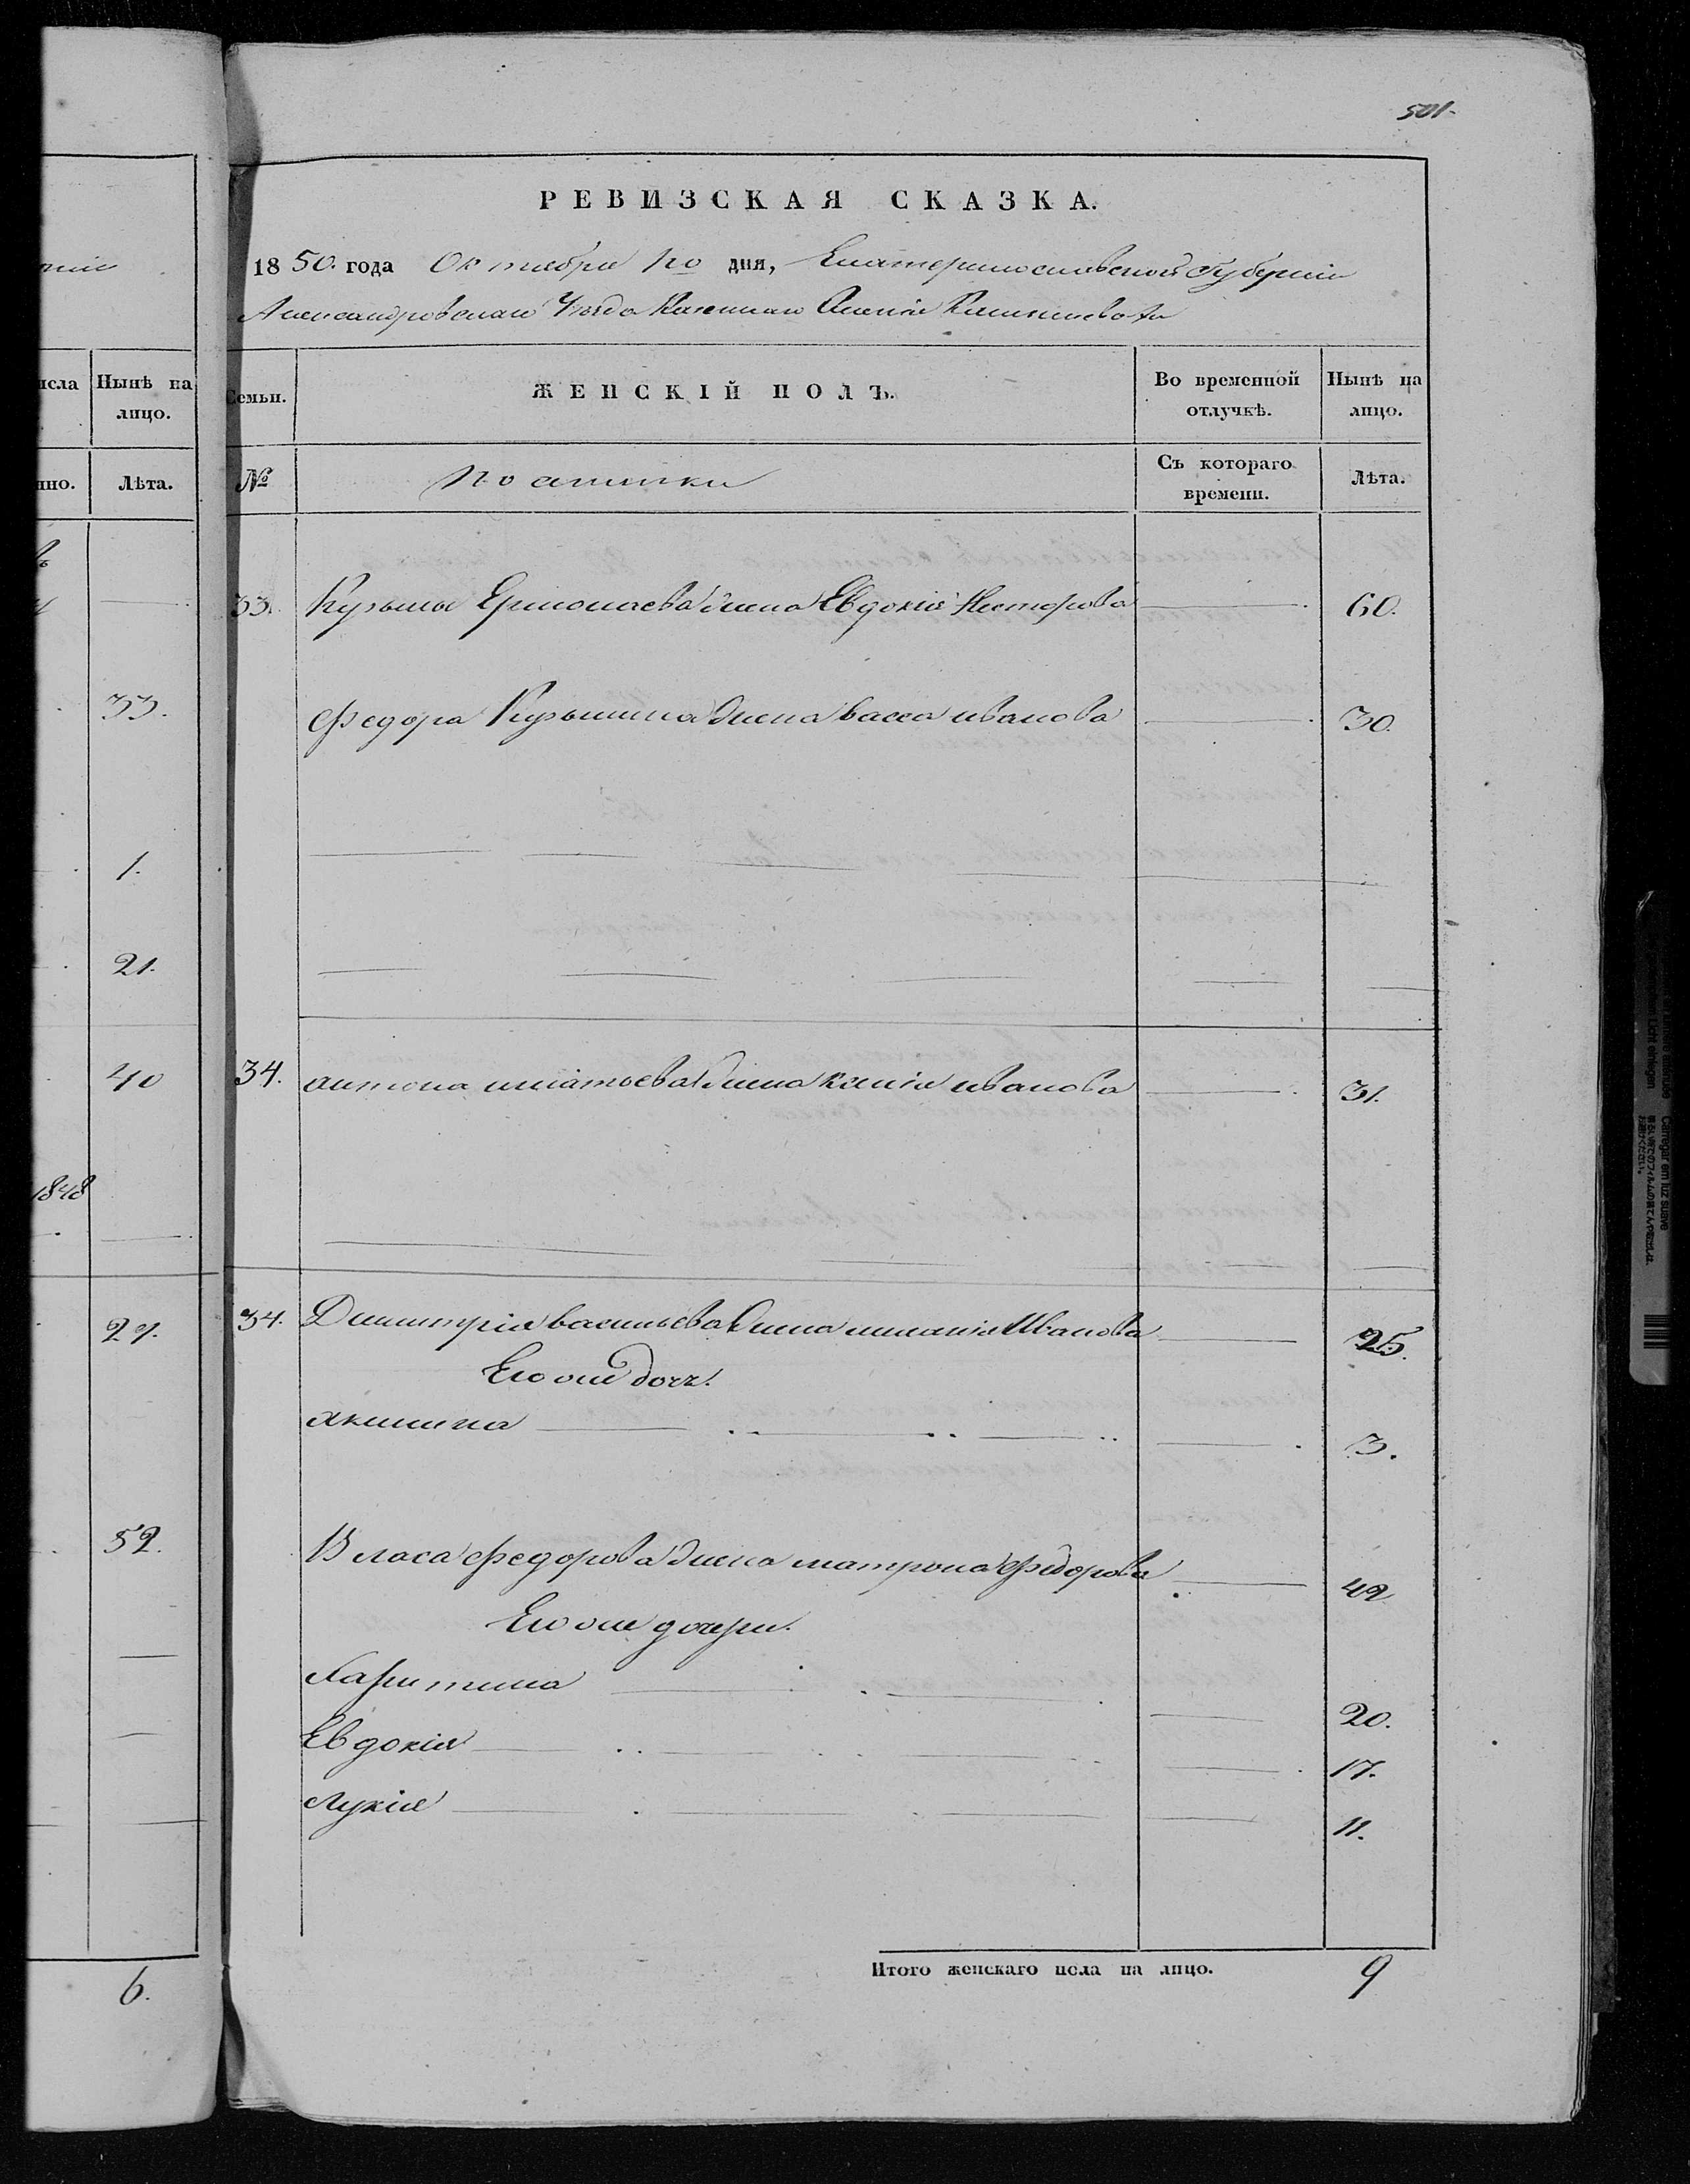 501.
РЕВИЗСКАЯ СКАЗКА.
1850. года Октября 1го дня, Екатеринославской Губерніи
Александровскаго Уѣзда Казеннаго
исла
Нынѣ на лицо.
Семьи.
ЖЕНСКІЙ ПОЛЪ.
Во временной отлучкѣ.
Нынѣ на лицо.
нно.
Лѣта.
№
Съ котораго времени.
Лѣта.
33. Кузьмы Ермолаева жена Евдокія Нестерова 60.
33.
Федора Кузьмина жена васса иванова 30.
1.
21.
40
34. антона игнатьева жена ксенія иванова 31.
1848
27.
34. Димитрія васильева жена меланія Иванова 25.
Его же дочь
акилина 3.
52.
Власа федорова жена матрона Федорова 42
Его же дочери.
Харитина 20.
Евдокія 17.
Лукія 11.
6.
Итого женскаго пола на лицо. 9